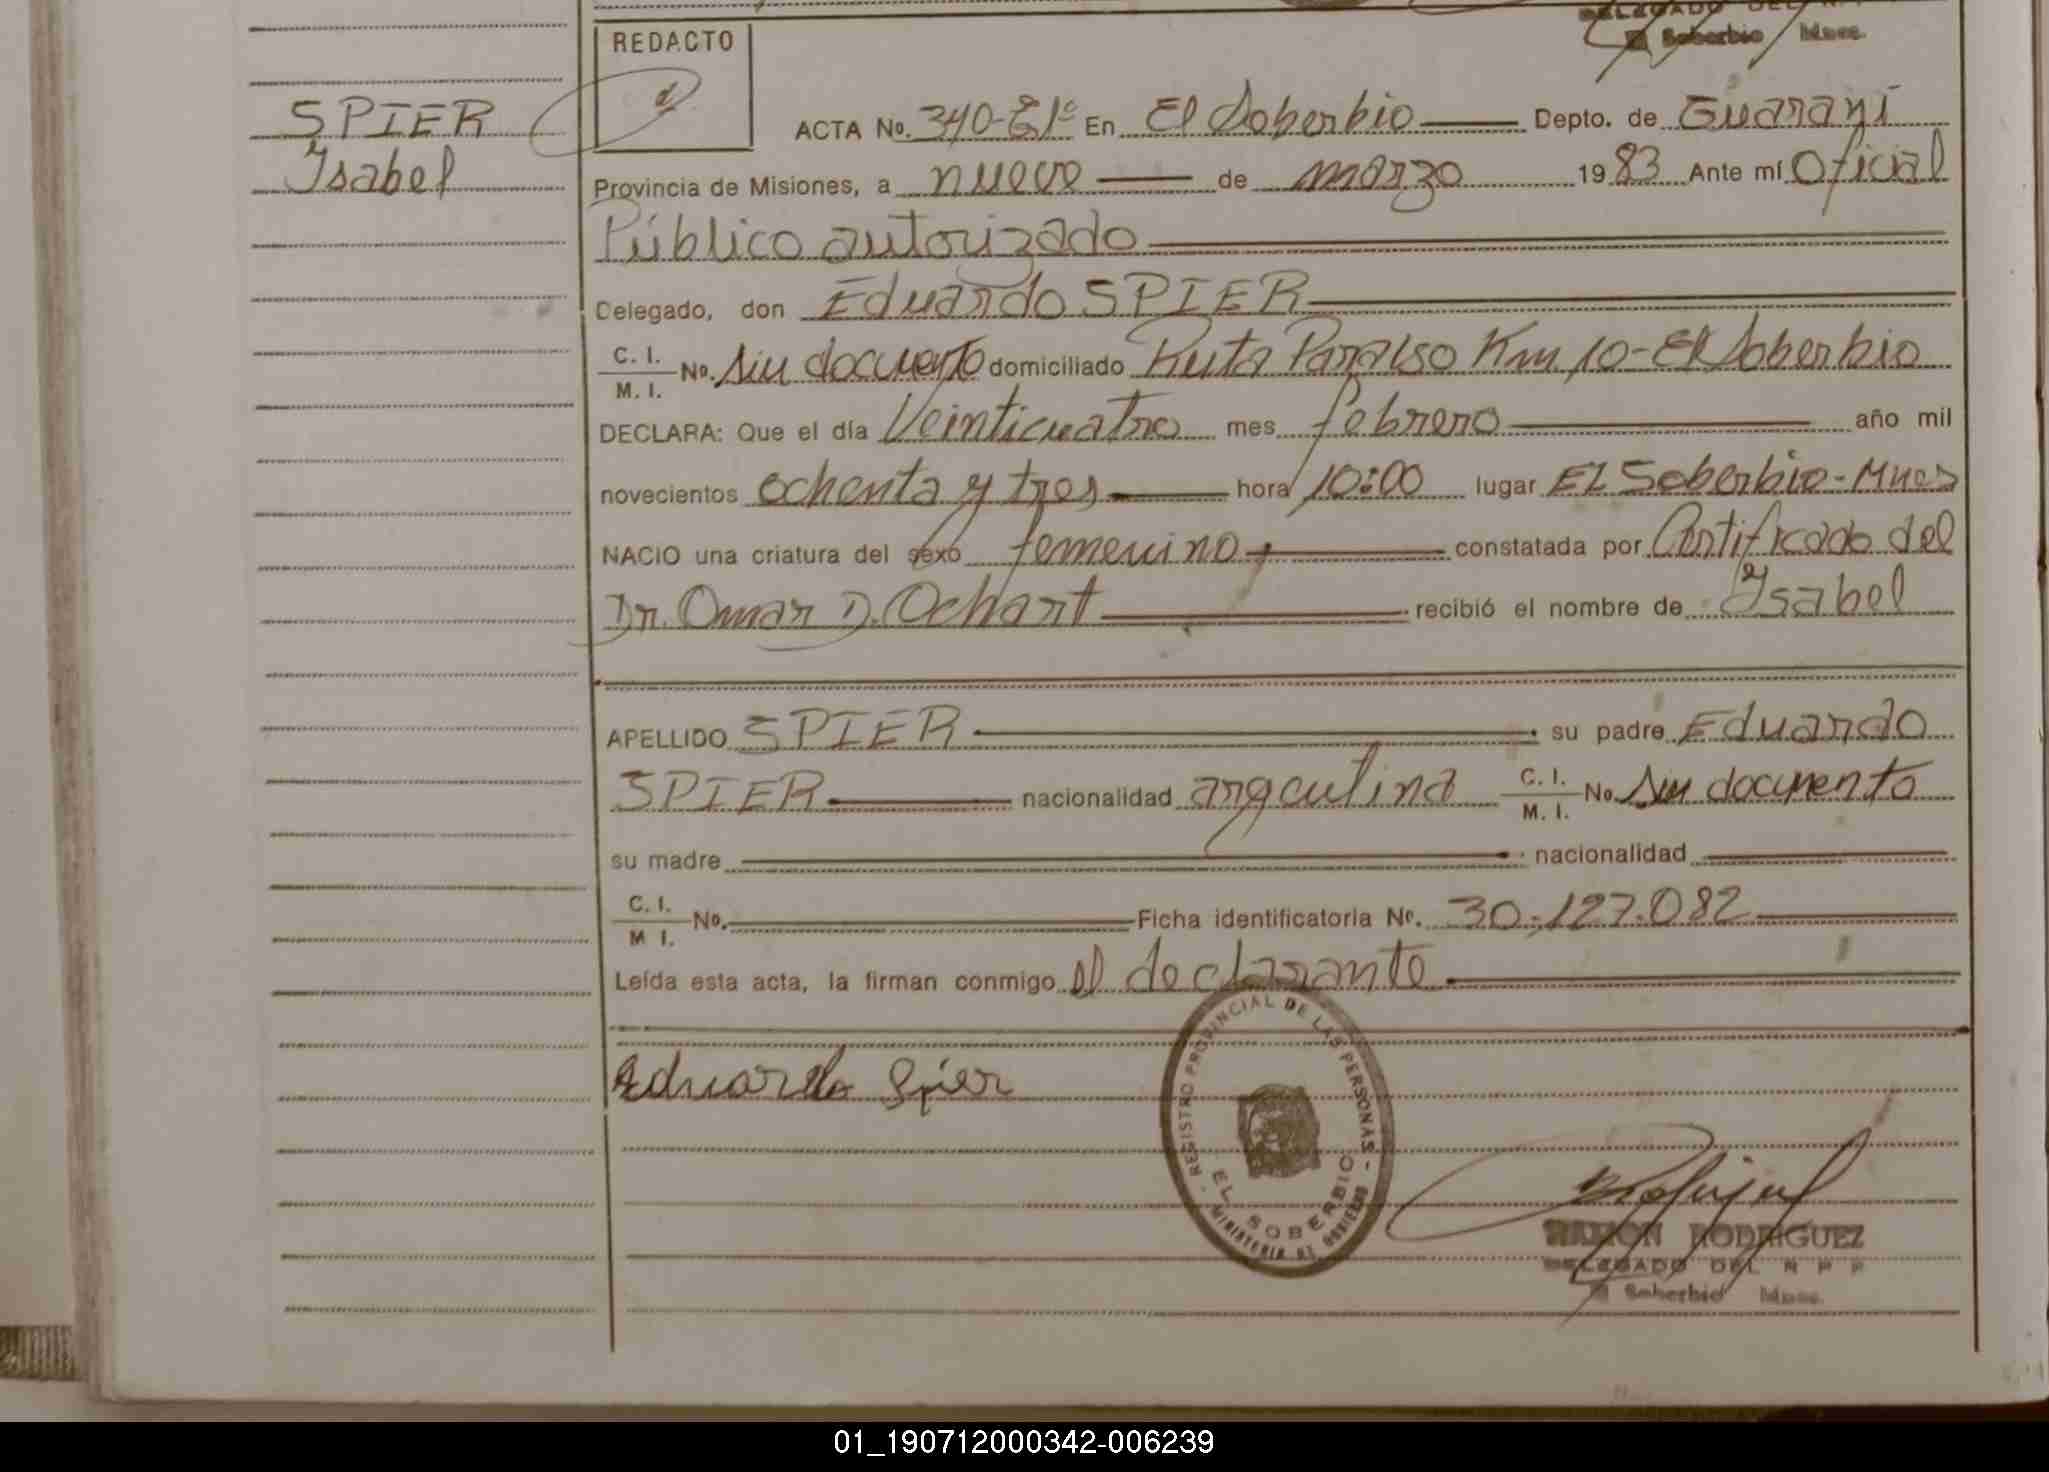 DELEGADO DEL
El Soberbio Mnes.
REDACTO
SPIER
Ysabel
ACTA No. 340-E1º En El Soberbio Depto. de Guaraní
Provincia de Misiones, a nueve de marzo 1983 Ante mí Oficial
Público autorizado
Delegado, don Eduardo SPIER
C. I.
M. I. No. Sin documento domiciliado Ruta Paraíso Km 10-El Soberbio
DECLARA: Que el día Veinticuatro mes febrero año mil
novecientos ochenta y tres hora 10:00 lugar El Soberbio-Mnes
NACIO una criatura del sexo femenino constatada por Certificado del
Dr. Omar D. Ochart recibió el nombre de Ysabel
APELLIDO SPIER su padre Eduardo
SPIER nacionalidad argentina C. I.
M. I. No. Sin documento
su madre nacionalidad
C. I.
M I. No. Ficha identificatoria No. 30.127.082
Leída esta acta, la firman conmigo el declarante
Eduardo Spier
REGISTRO PROVINCIAL DE LAS PERSONAS
EL SOBERBIO
MINISTERIO DE GOBIERNO
RAMON RODRIGUEZ
DELEGADO DEL R P P
El Soberbio Mnes.
01_190712000342-006239